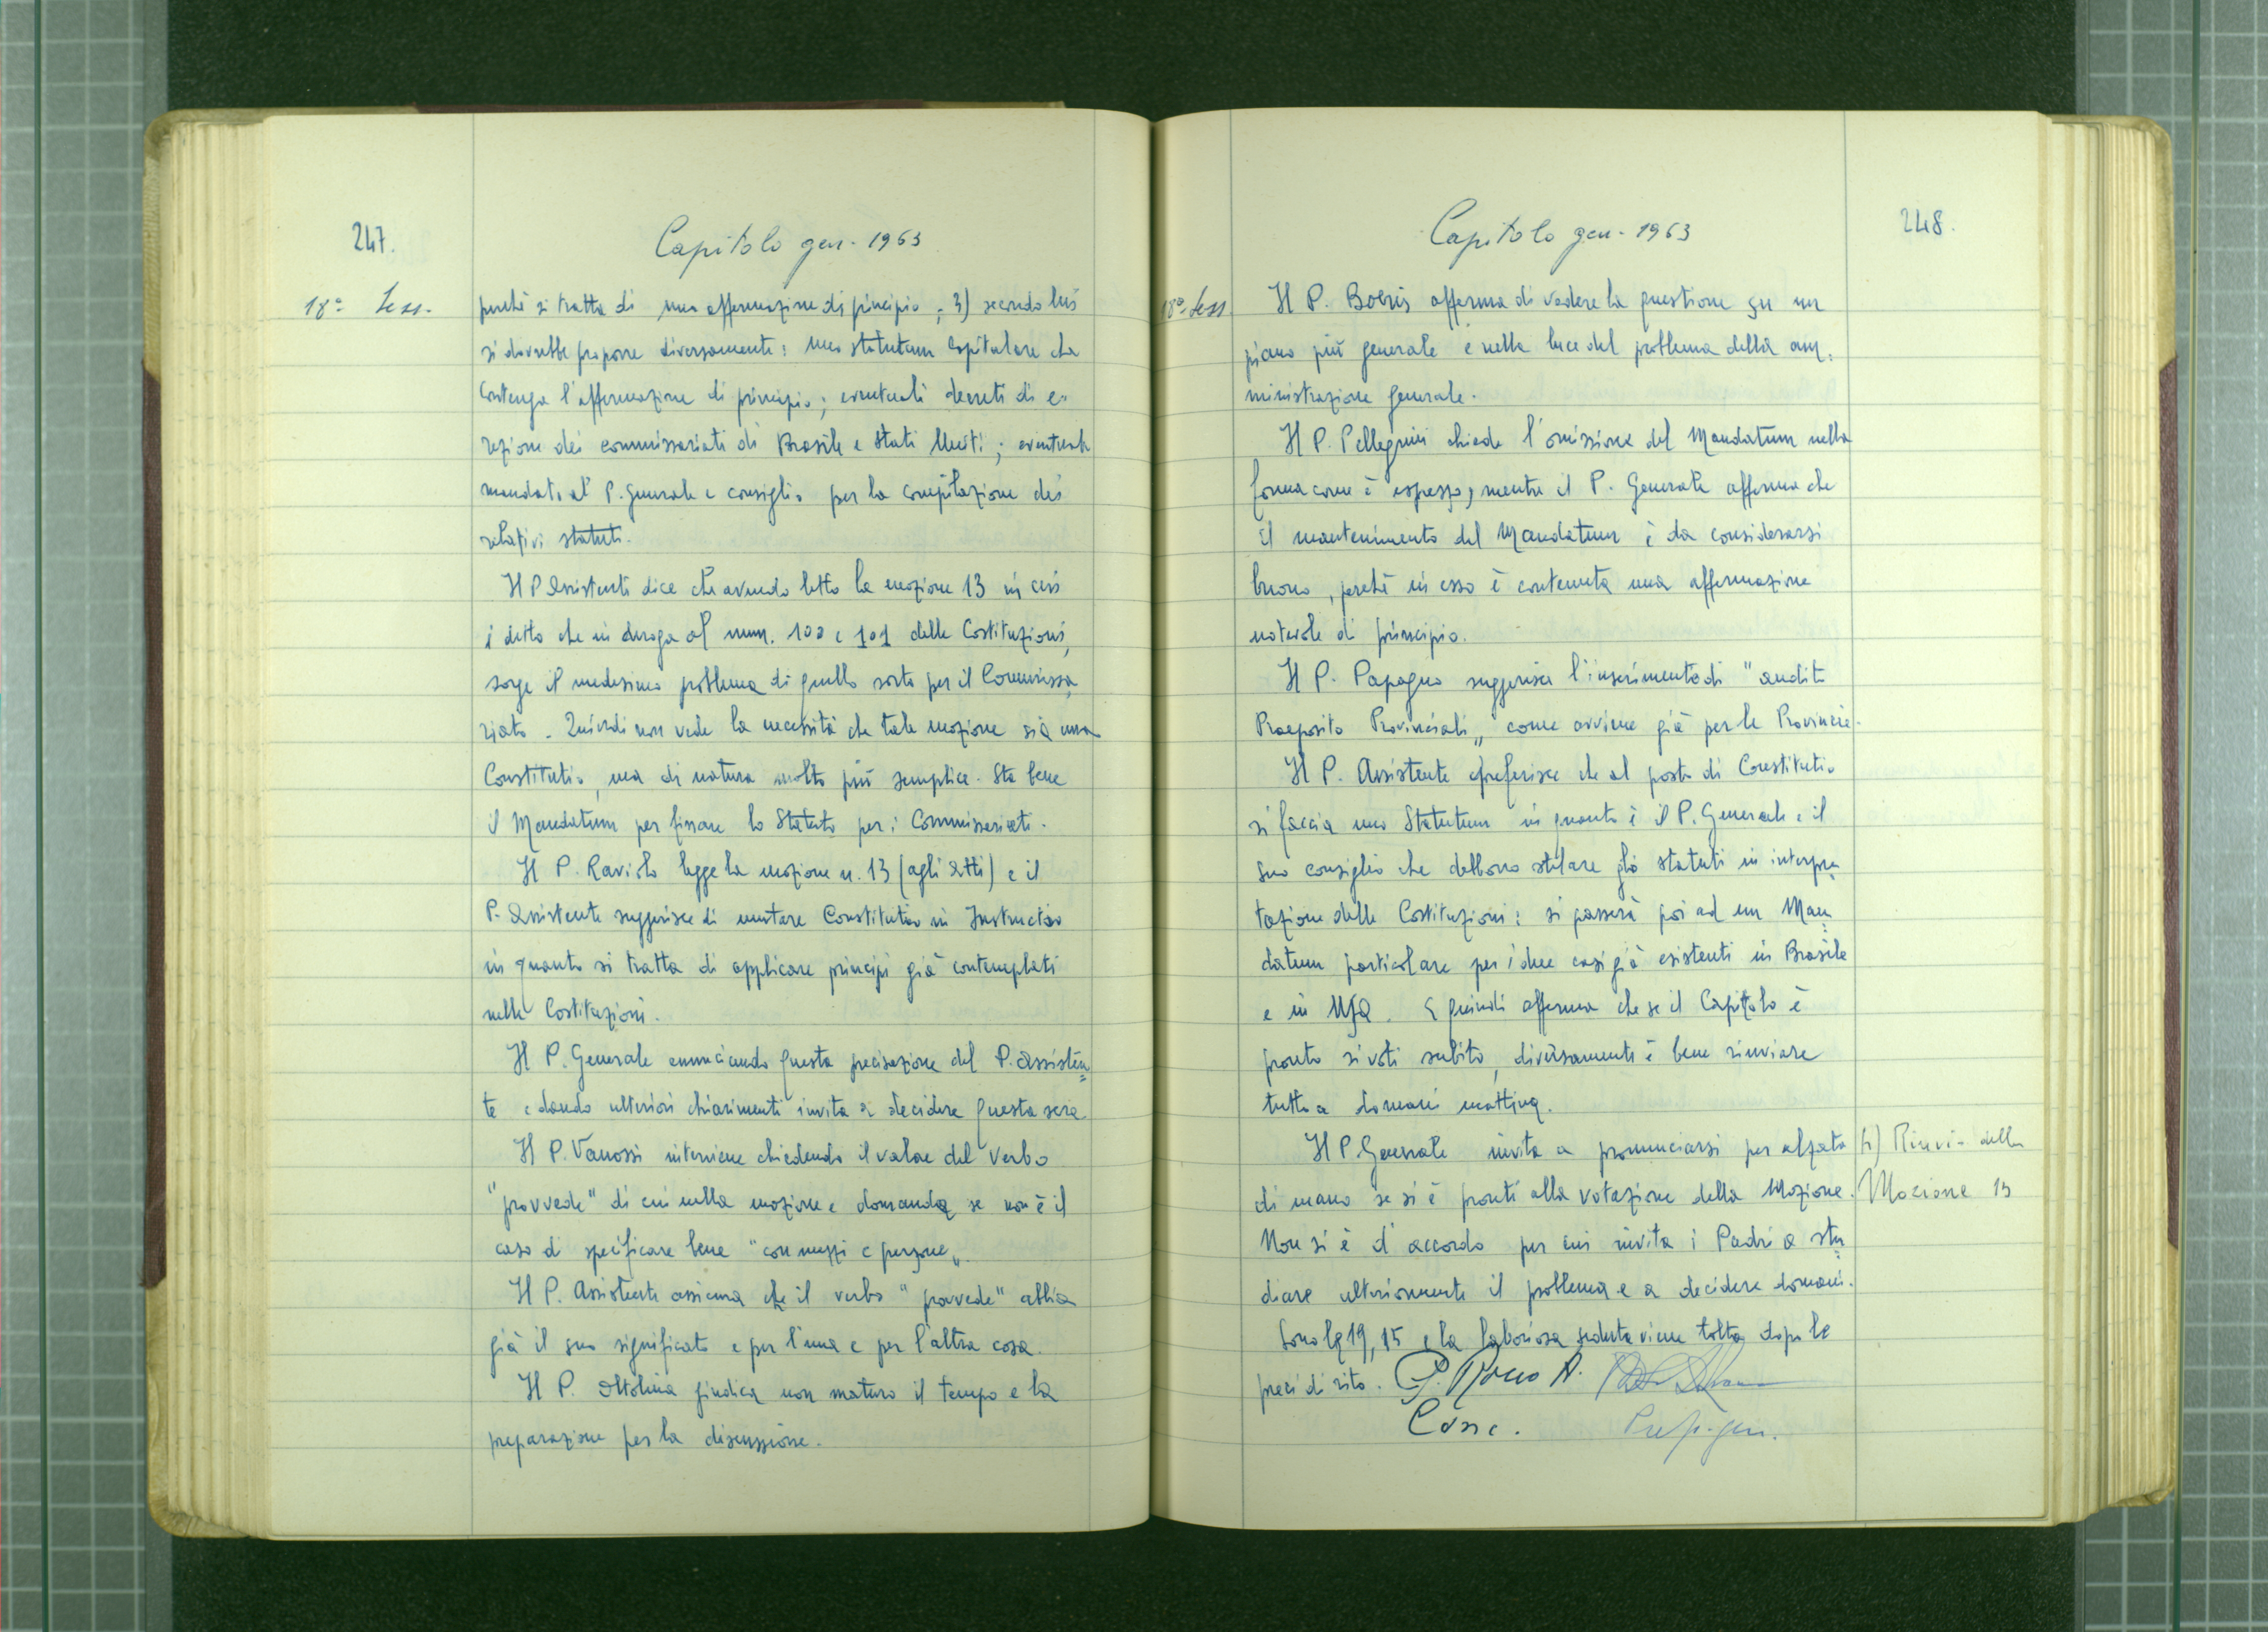 247.
Capitolo gen. 1963
18ª Sess.
perché si tratta di una affermazione di principio; 3) secondo lui
si dovrebbe proporre diversamente: uno statutum Capitolare che
contenga l'affermazione di principio; eventuali decreti di e-
rezione dei commissariati di Brasile e Stati Uniti; eventuale
mandato al P. Generale e consiglio per la compilazione dei
relativi statuti.
Il P. Assistente dice che avendo letto la mozione 13 in cui
è detto che in deroga al num. 100 e 101 delle Costituzioni,
sorge il medesimo problema di quello sorto per il Commissa=
riato. Quindi non vede la necessità che tale mozione sia una
Constitutio, ma di natura molto più semplice. Sta bene
il Mandatum per fissare lo Statuto per i Commissariati.
Il P. Raviolo legge la mozione n. 13 (agli Atti) e il
P. Assistente suggerisce di mutare Constitutio in Instructio
in quanto si tratta di applicare principi già contemplati
nelle Costituzioni.
Il P. Generale enunciando questa precisazione del P. Assisten=
te e dando ulteriori chiarimenti invita a decidere questa sera
Il P. Vanossi interviene chiedendo il valore del verbo
"provvede" di cui nella mozione e domanda se non è il
caso di specificare bene "con mezzi e persone".
Il P. Assistente assicura che il verbo "provvede" abbia
già il suo significato e per l'una e per l'altra cosa.
Il P. Ottolina giudica non maturo il tempo e la
preparazione per la discussione.
Capitolo gen. 1963
248.
18ª Sess.
Il P. Boeris afferma di vedere la questione su un
piano più generale e nella luce del problema della am=
ministrazione generale.
Il P. Pellegrini chiede l'omissione del Mandatum nella
forma come è espresso, mentre il P. Generale afferma che
il mantenimento del Mandatum è da considerarsi
buono, perché in esso è contenuta una affermazione
notevole di principio.
Il P. Papagno suggerisce l'inserimento di "audito
Praeposito Provinciali" come avviene già per le Provincie.
Il P. Assistente preferisce che al posto di Constitutio
si faccia uno Statutum in quanto è il P. Generale e il
suo consiglio che debbono stilare gli statuti in interpre=
tazione delle Costituzioni: si passerà poi ad un Man=
datum particolare per i due casi già esistenti in Brasile
e in USA. E quindi afferma che se il Capitolo è
pronto si voti subito, diversamente è bene rinviare
tutto a domani mattina.
Il P. Generale invita a pronunciarsi per alzata
di mano se si è pronti alla votazione della Mozione.
Non si è d'accordo per cui invita i Padri a stu=
diare ulteriormente il problema e a decidere domani.
Sono le 19,15 e la laboriosa seduta viene tolta dopo le
preci di rito.
h) Rinvio della
Mozione 13
P. Rocco A.
Canc.
Prep. gen.